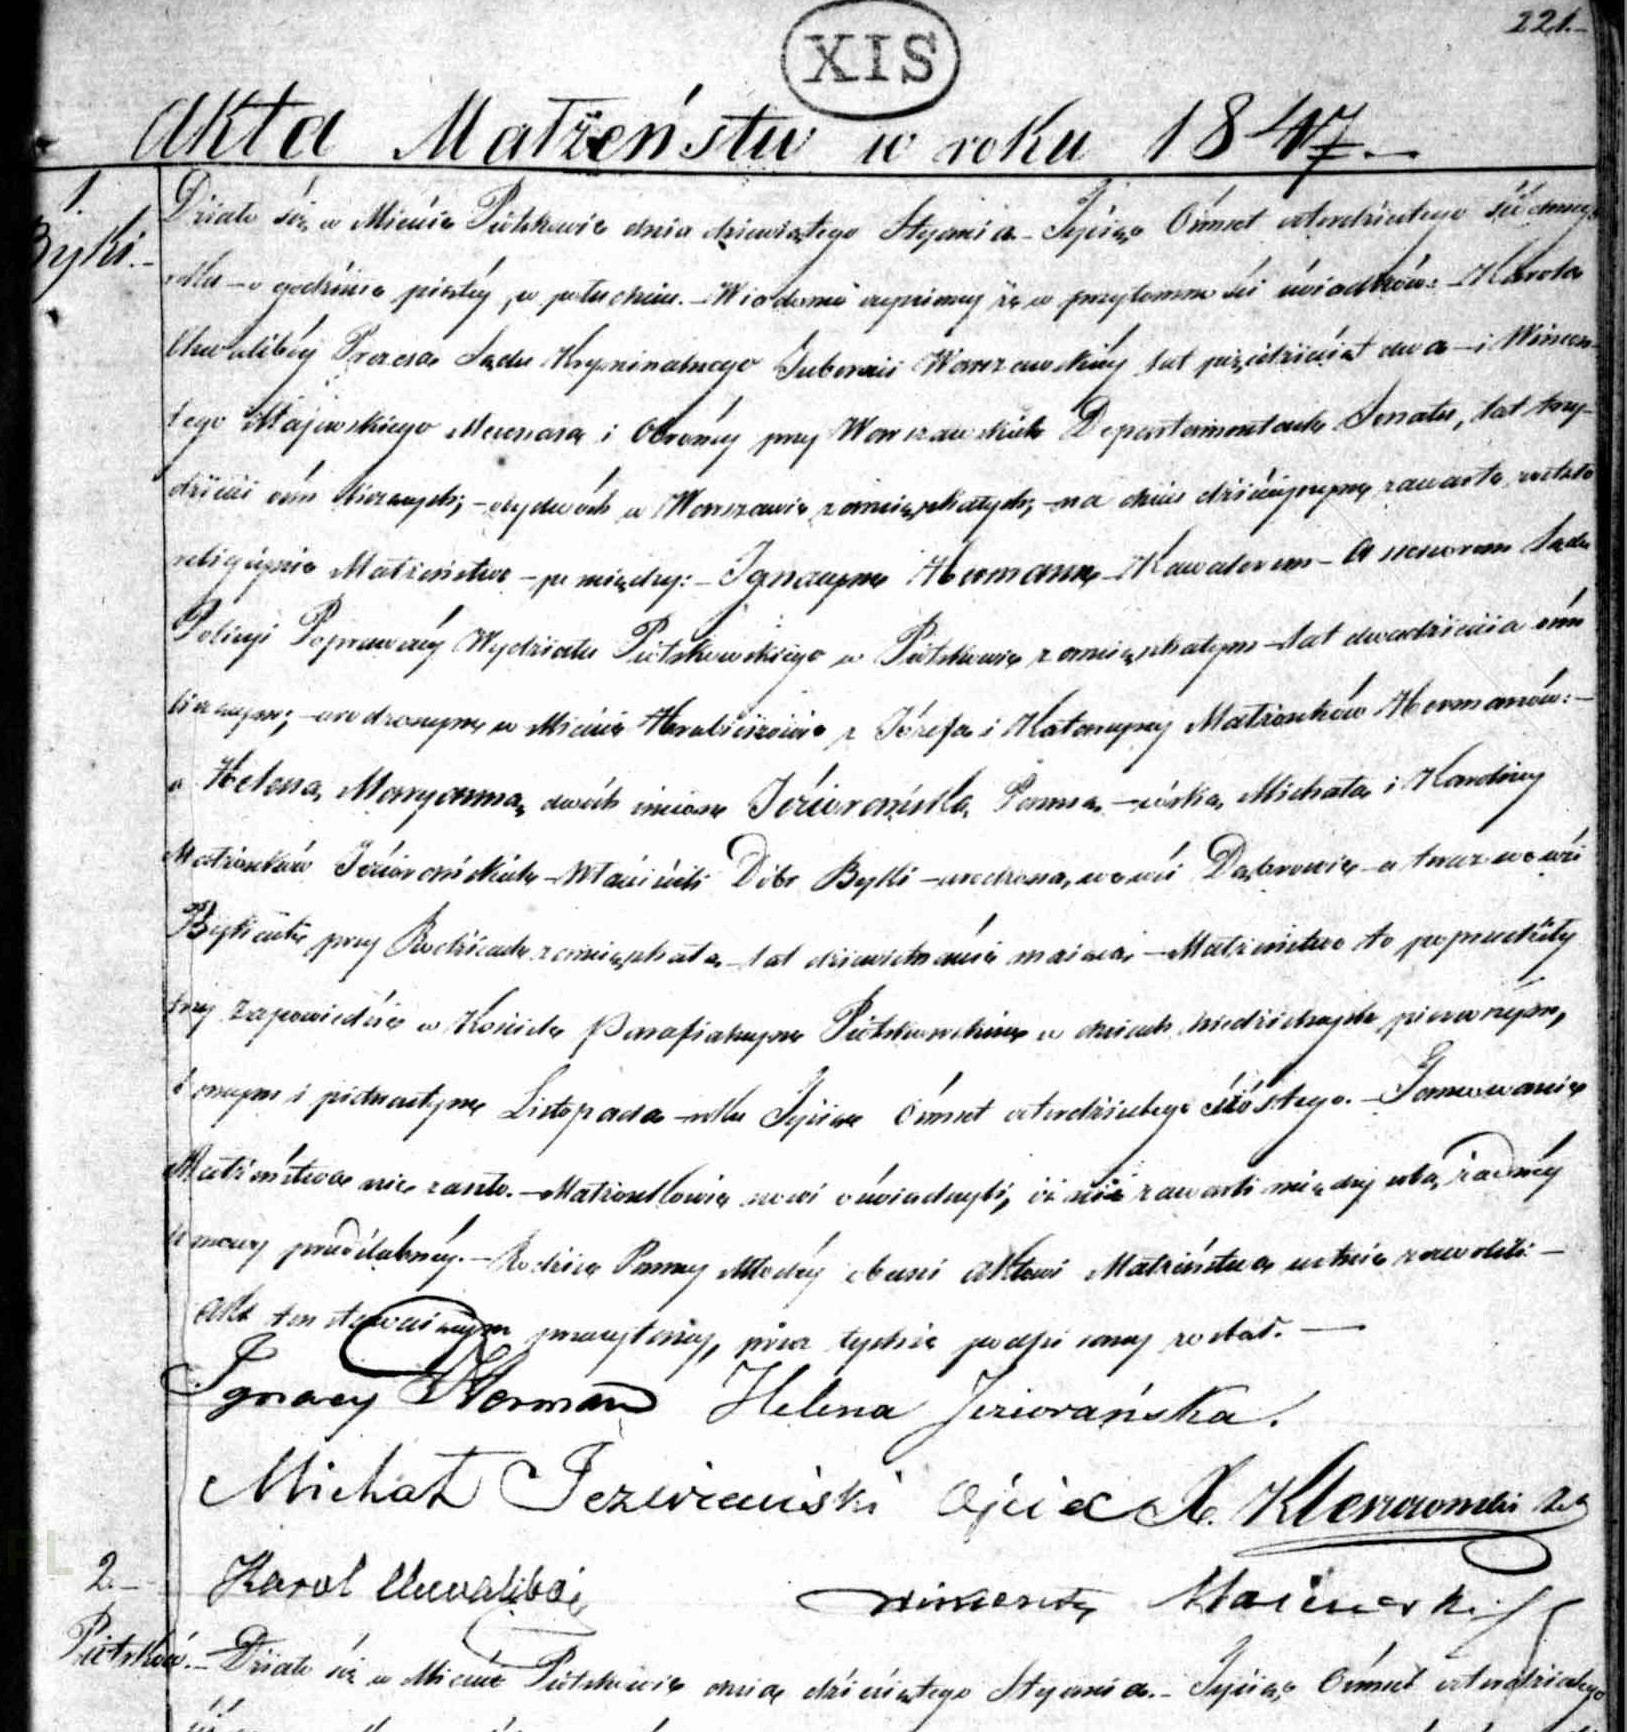 221.
XIS
Akta Małżeństw w roku 1847.
1.
Byki.
Działo się w Mieście Piotrkowie dnia dziewiątego Stycznia Tysiąc Ośmset czterdziestego siódmego
roku – o godzinie piątéj po południu. – Wiadomo czyniemy że w przytomności świadków: – Karola
Chwalibóg Prezesa Sądu Kryminalnego Gubernii Warszawskiéj lat pięćdziesiąt dwa – i Wincen-
tego Majewskiego Mecenasa i Obrońcy przy Warszawskich Departamentach Senatu, lat trzy-
dzieści ośm liczących; – obydwóch w Warszawie zamieszkałych; – na dniu dzisiejszym zawarte zostało
religijnie Małżeństwo – pomiędzy: – Ignacym Herman – Kawalerem – Assessorem Sądu
Policyi Poprawczéj Wydziału Piotrkowskiego w Piotrkowie zamieszkałym – lat dwadzieścia ośm
liczącym; – urodzonym w Mieście z Józefa i Katarzyny Małżonków Hermanów: –
a Heleną Maryanną dwóch imion Jeziorańską Panną – córką Michała i Karoliny
Małżonków Jeziorańskich – Właścicieli Dóbr Byki – urodzoną we wsi Dąbrowie – a teraz we wsi
Bykach przy Rodzicach zamieszkałą – lat dziewiętnaście maiącą. – Małżeństwo to poprzedziły
trzy zapowiedzie w Kościele Parafialnym Piotrkowskim w dniach niedzielnych pierwszym,
ósmym i piętnastym Listopada – roku Tysiąc Ośmset czterdziestego szóstego. – Tamowanie
Małżeństwa nie zaszło. – Małżonkowie nowi oświadczyli, iż nie zawarli między sobą żadnéj
umowy przedślubnéj. – Rodzice Panny Młodéj obecni Aktowi Małżeństwa ustnie zezwolili: –
Akt ten stawaiącym przeczytany, przez tychże podpisany został. –
Ignacy Herman Helena Jeziorańska.
Michał Jeziorański Ojciec X.
Karol Chwalibóg Wincenty Majewski
2.
Piotrków. – Działo się w Mieście Piotrkowie dnia dziesiątego Stycznia. – Tysiąc Ośmset czterdziestego